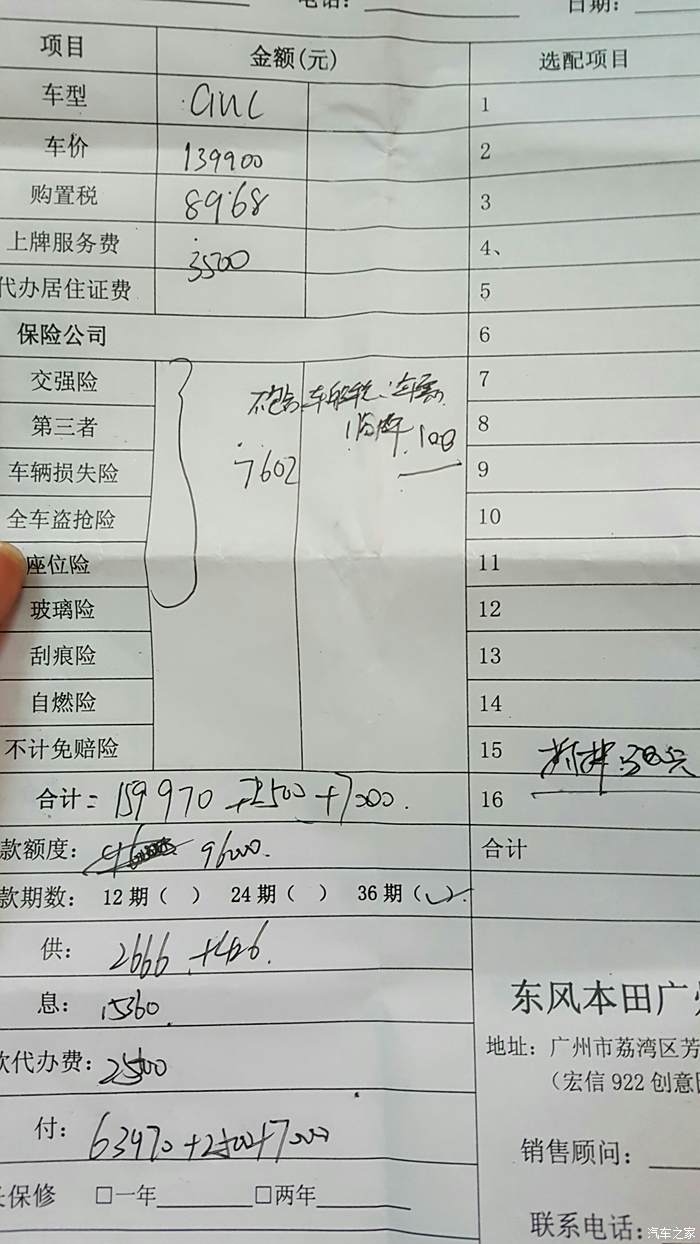 电话： 日期：
项目 金额(元) 选配项目
车型 CIVIC 1
车价 139900 2
购置税 8968 3
上牌服务费 3500 4、
代办居住证费 5
保险公司 6
交强险 不包含车船税、 7
第三者 100 8
车辆损失险 7602 9
全车盗抢险 10
座位险 11
玻璃险 12
刮痕险 13
自燃险 14
不计免赔险 15
合计： 159970+2500+7000. 16
款额度： 96000. 合计
款期数： 12期（ ） 24期（ ） 36期（✓）
供： 2666 +426.
息： 15360
款代办费：2500
付： 63970+2500+7000
长保修 □一年 □两年
东风本田广州
地址：广州市荔湾区芳
（宏信922创意园
销售顾问：
联系电话：
汽车之家